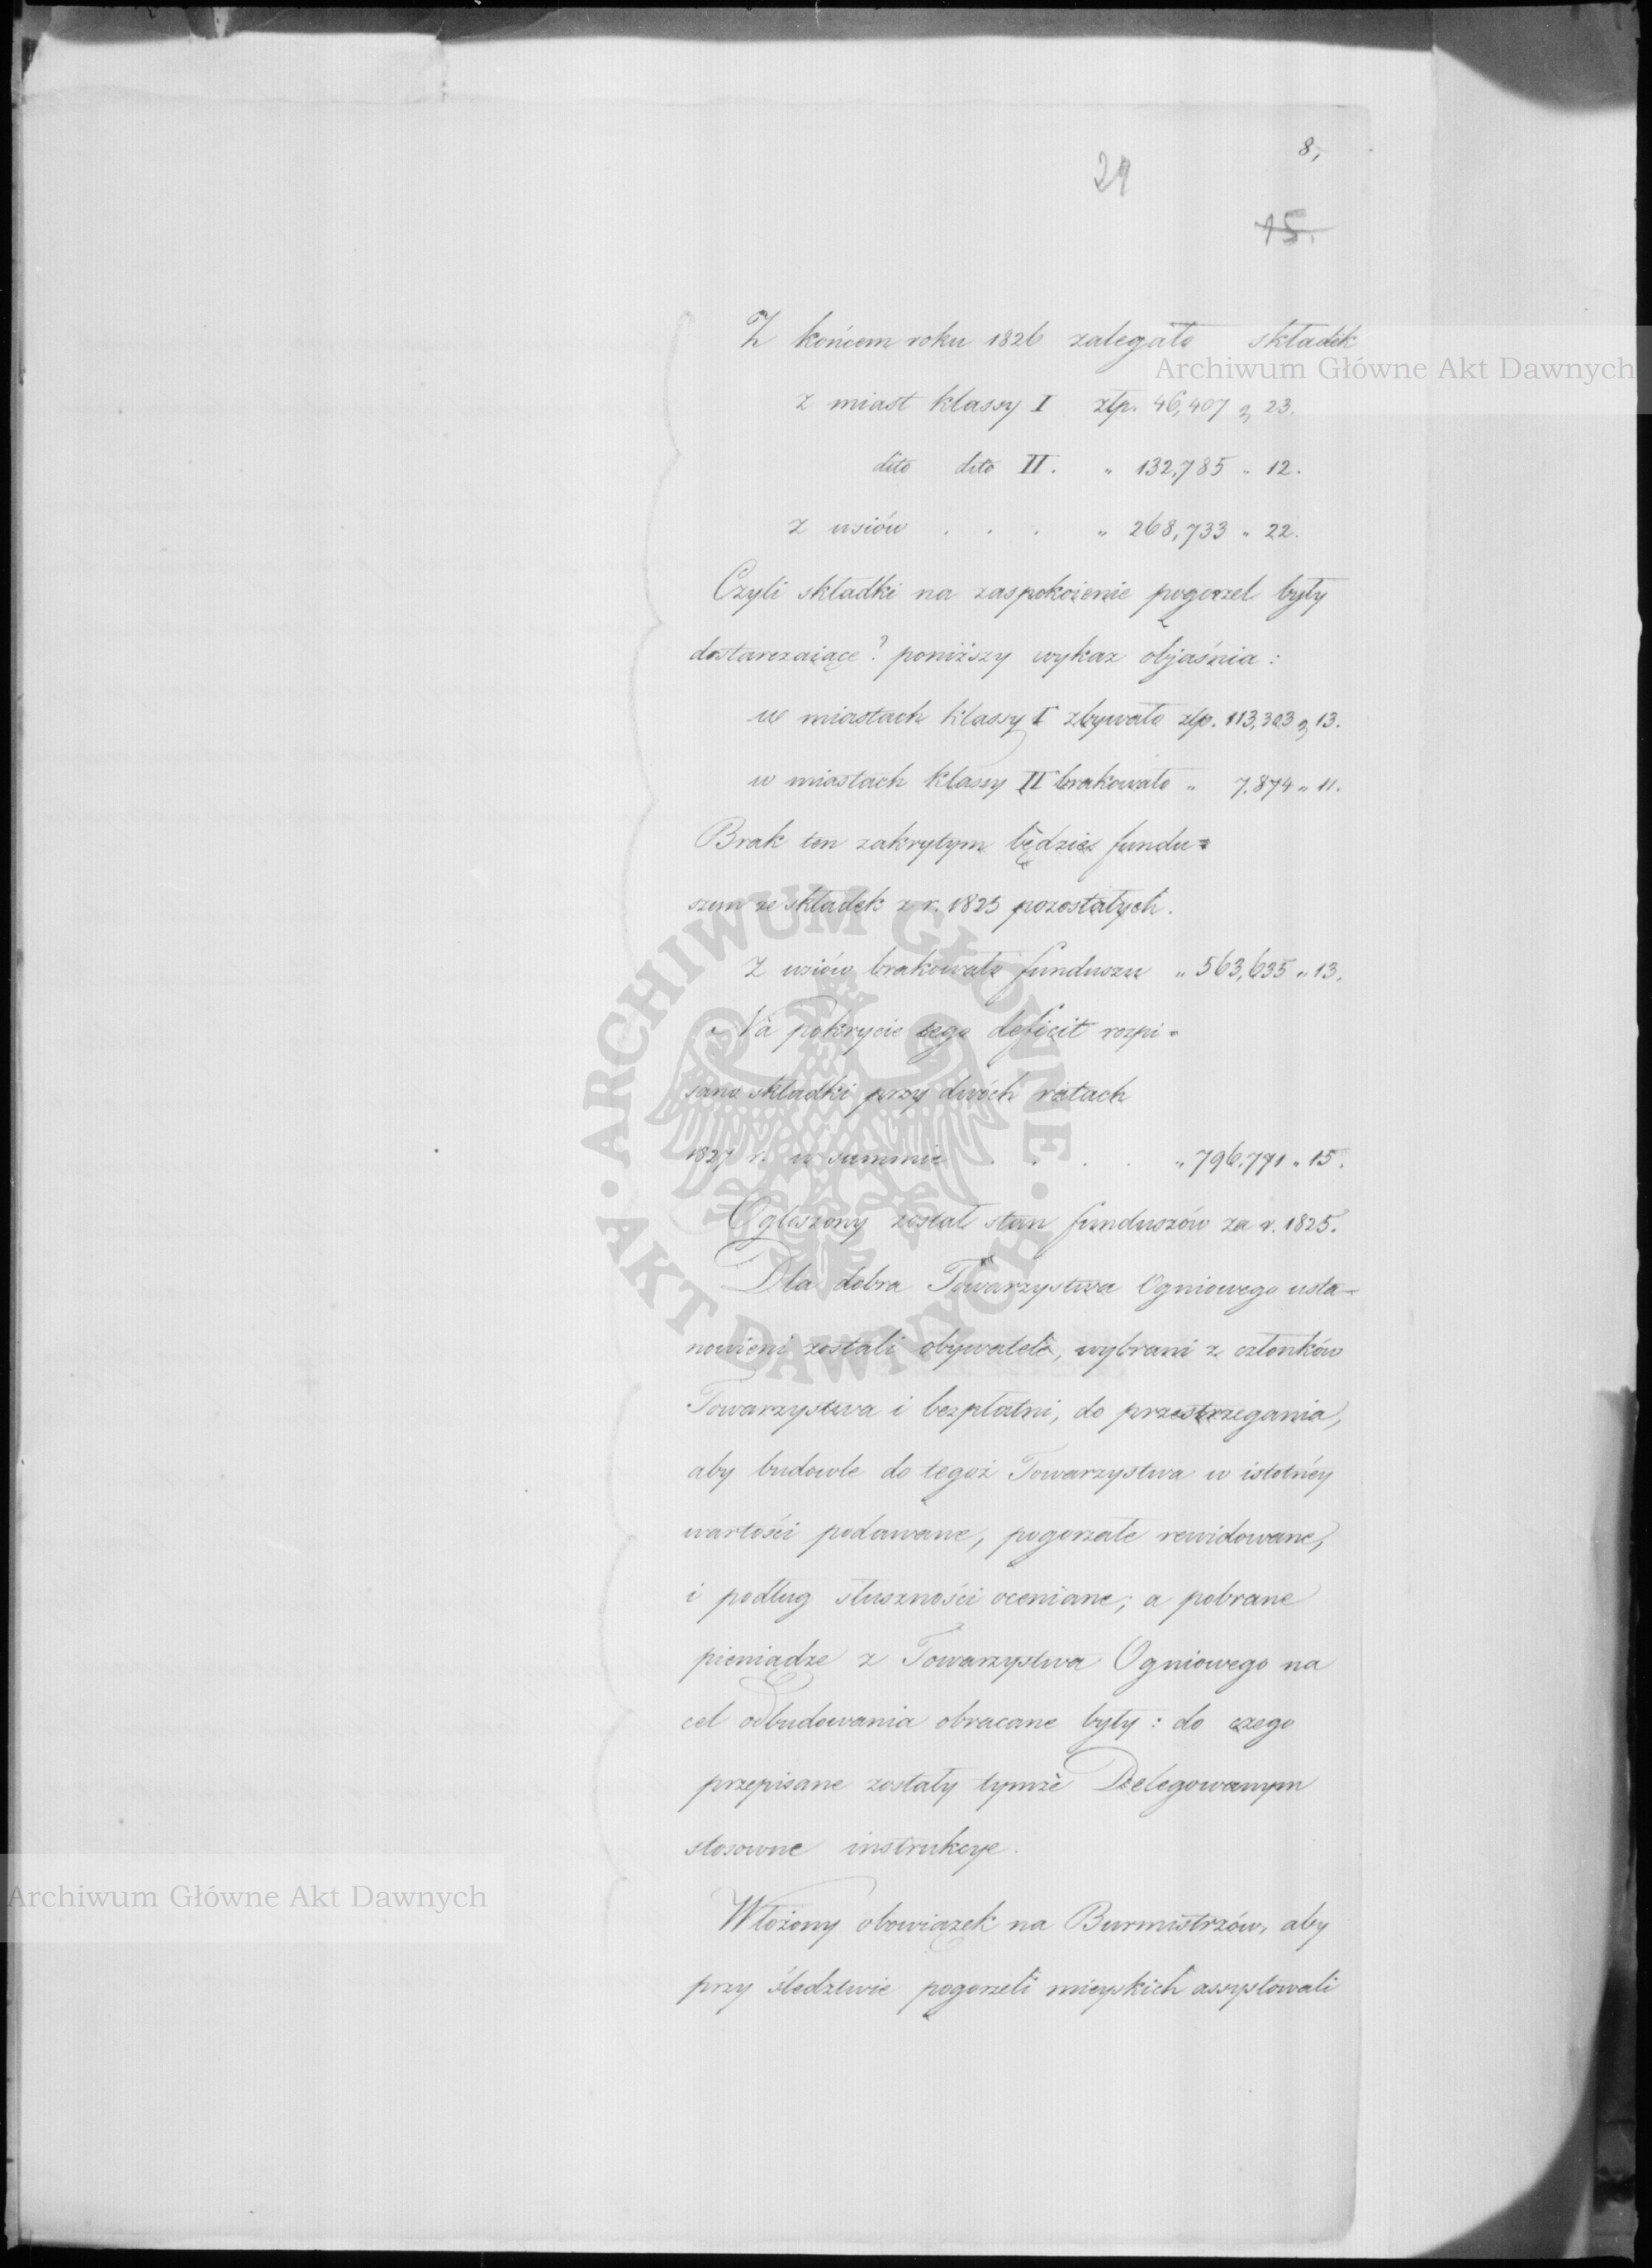 8,
29
15.
Z końcem roku 1826 zalegało składek
Archiwum Główne Akt Dawnych
z miast klassy I złp. 46,407 g, 23.
dito dito II. " 132,785 " 12.
z wsiów . . . " 268,733 " 22.
Czyli składki na zaspokoienie pogorzel były
dostarczaiące? poniższy wykaz objaśnia:
w miastach klassy I zbywało złp. 113,303 g, 13.
w miastach klassy II brakowało " 7,874 " 11.
Brak ten zakrytym będzie fundu=
szem ze składek z r. 1825 pozostałych.
Z wsiów brakowało funduszu " 563,635 " 13.
Na pokrycie tego deficit rozpi=
sano składki przy dwóch ratach
1827 r. w summie . . . . " 796,771 " 15.
Ogłoszony został stan funduszów za r. 1825.
Dla dobra Towarzystwa Ogniowego usta-
nowieni zostali obywatele, wybrani z członków
Towarzystwa i bezpłatni, do przestrzegania,
aby budowle do tegoż Towarzystwa w istotnéy
wartości podawane, pogorzałe rewidowane,
i podług słuszności oceniane; a pobrane
pieniądze z Towarzystwa Ogniowego na
cel odbudowania obracane były: do czego
przepisane zostały tymże Delegowanym
stosowne instrukcye.
Archiwum Główne Akt Dawnych
Włożony obowiązek na Burmistrzów, aby
przy śledztwie pogorzeli mieyskich assystowali
ARCHIWUM GŁÓWNE · AKT DAWNYCH ·